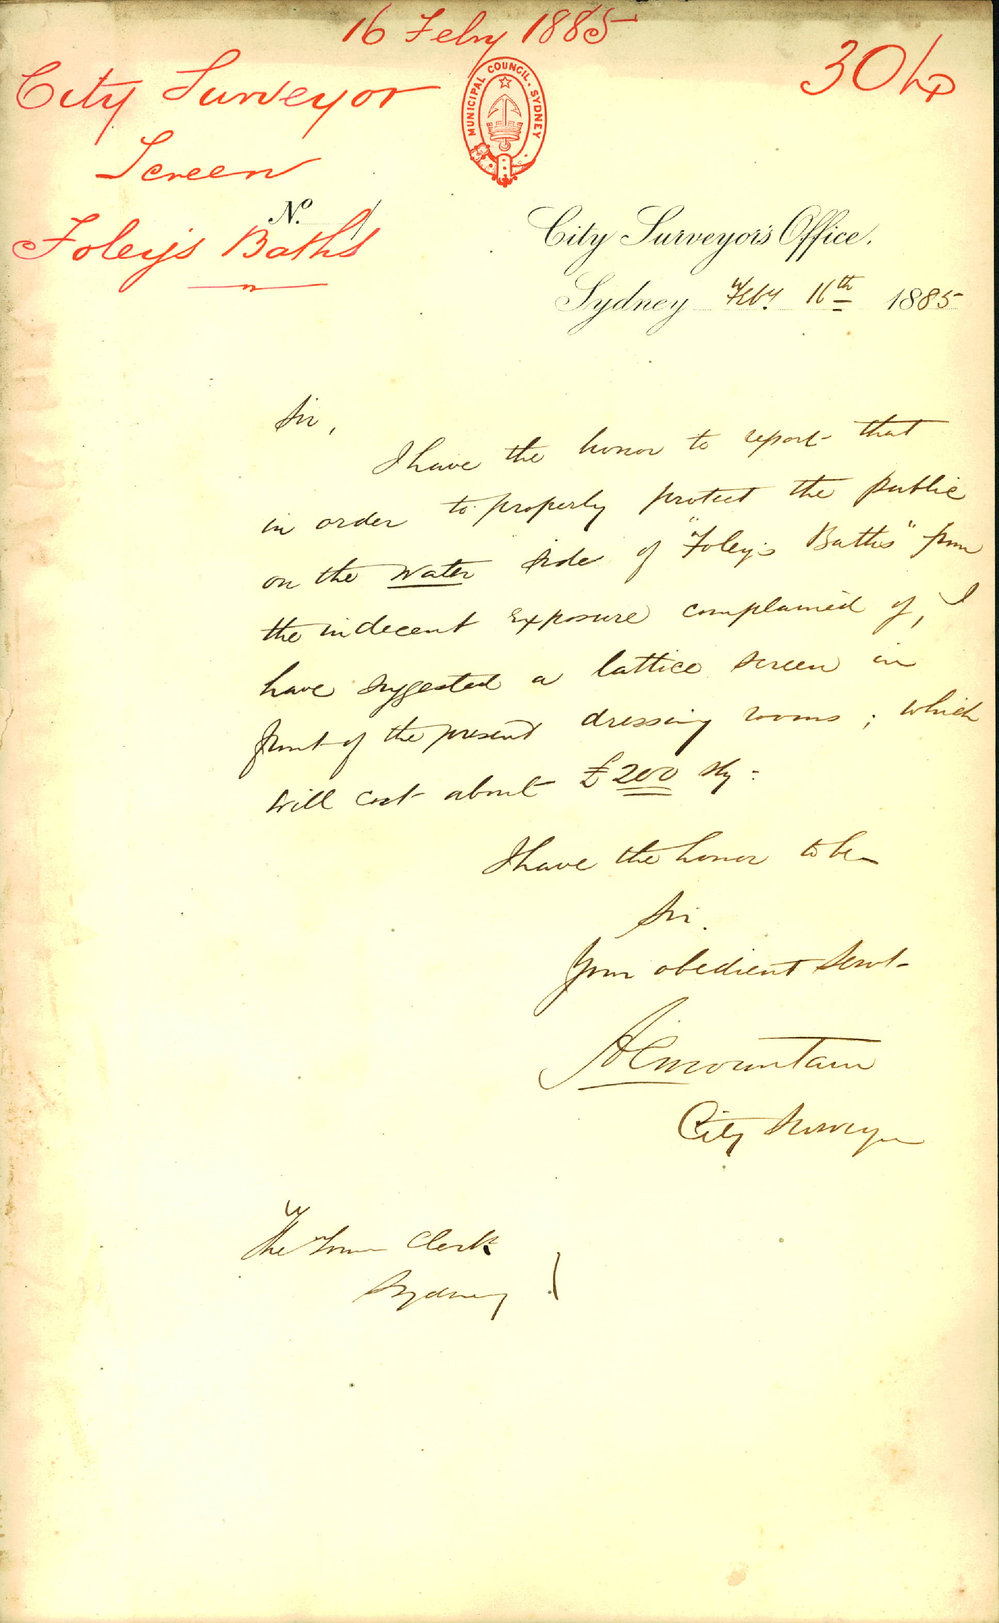 16 Feby 1885
304
City Surveyor
Screen
Foley's Baths
MUNICIPAL COUNCIL. SYDNEY
No.
City Surveyor's Office.
Sydney Feby 16th 1885
Sir,
I have the honor to report that
in order to properly protect the public
on the water side of "Foley's Baths" from
the indecent exposure complained of, I
have suggested a lattice screen in
front of the present dressing rooms; which
will cost about £200 stg:
I have the honor to be
Sir.
Your obedient Servt
A C Mountain
City Surveyor
The Town Clerk
Sydney